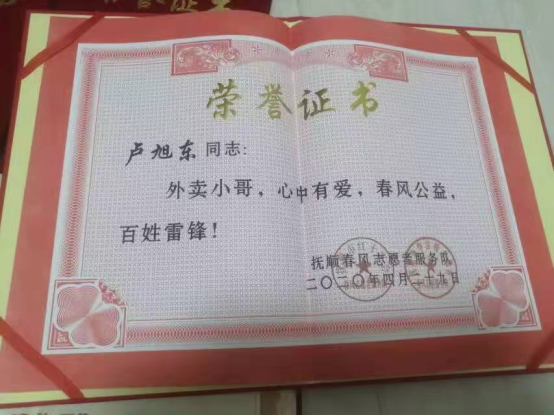 荣誉证书
卢旭东同志:
外卖小哥，心中有爱，春风公益，
百姓雷锋！
抚顺春风志愿者服务队
二〇二〇年四月二十九日